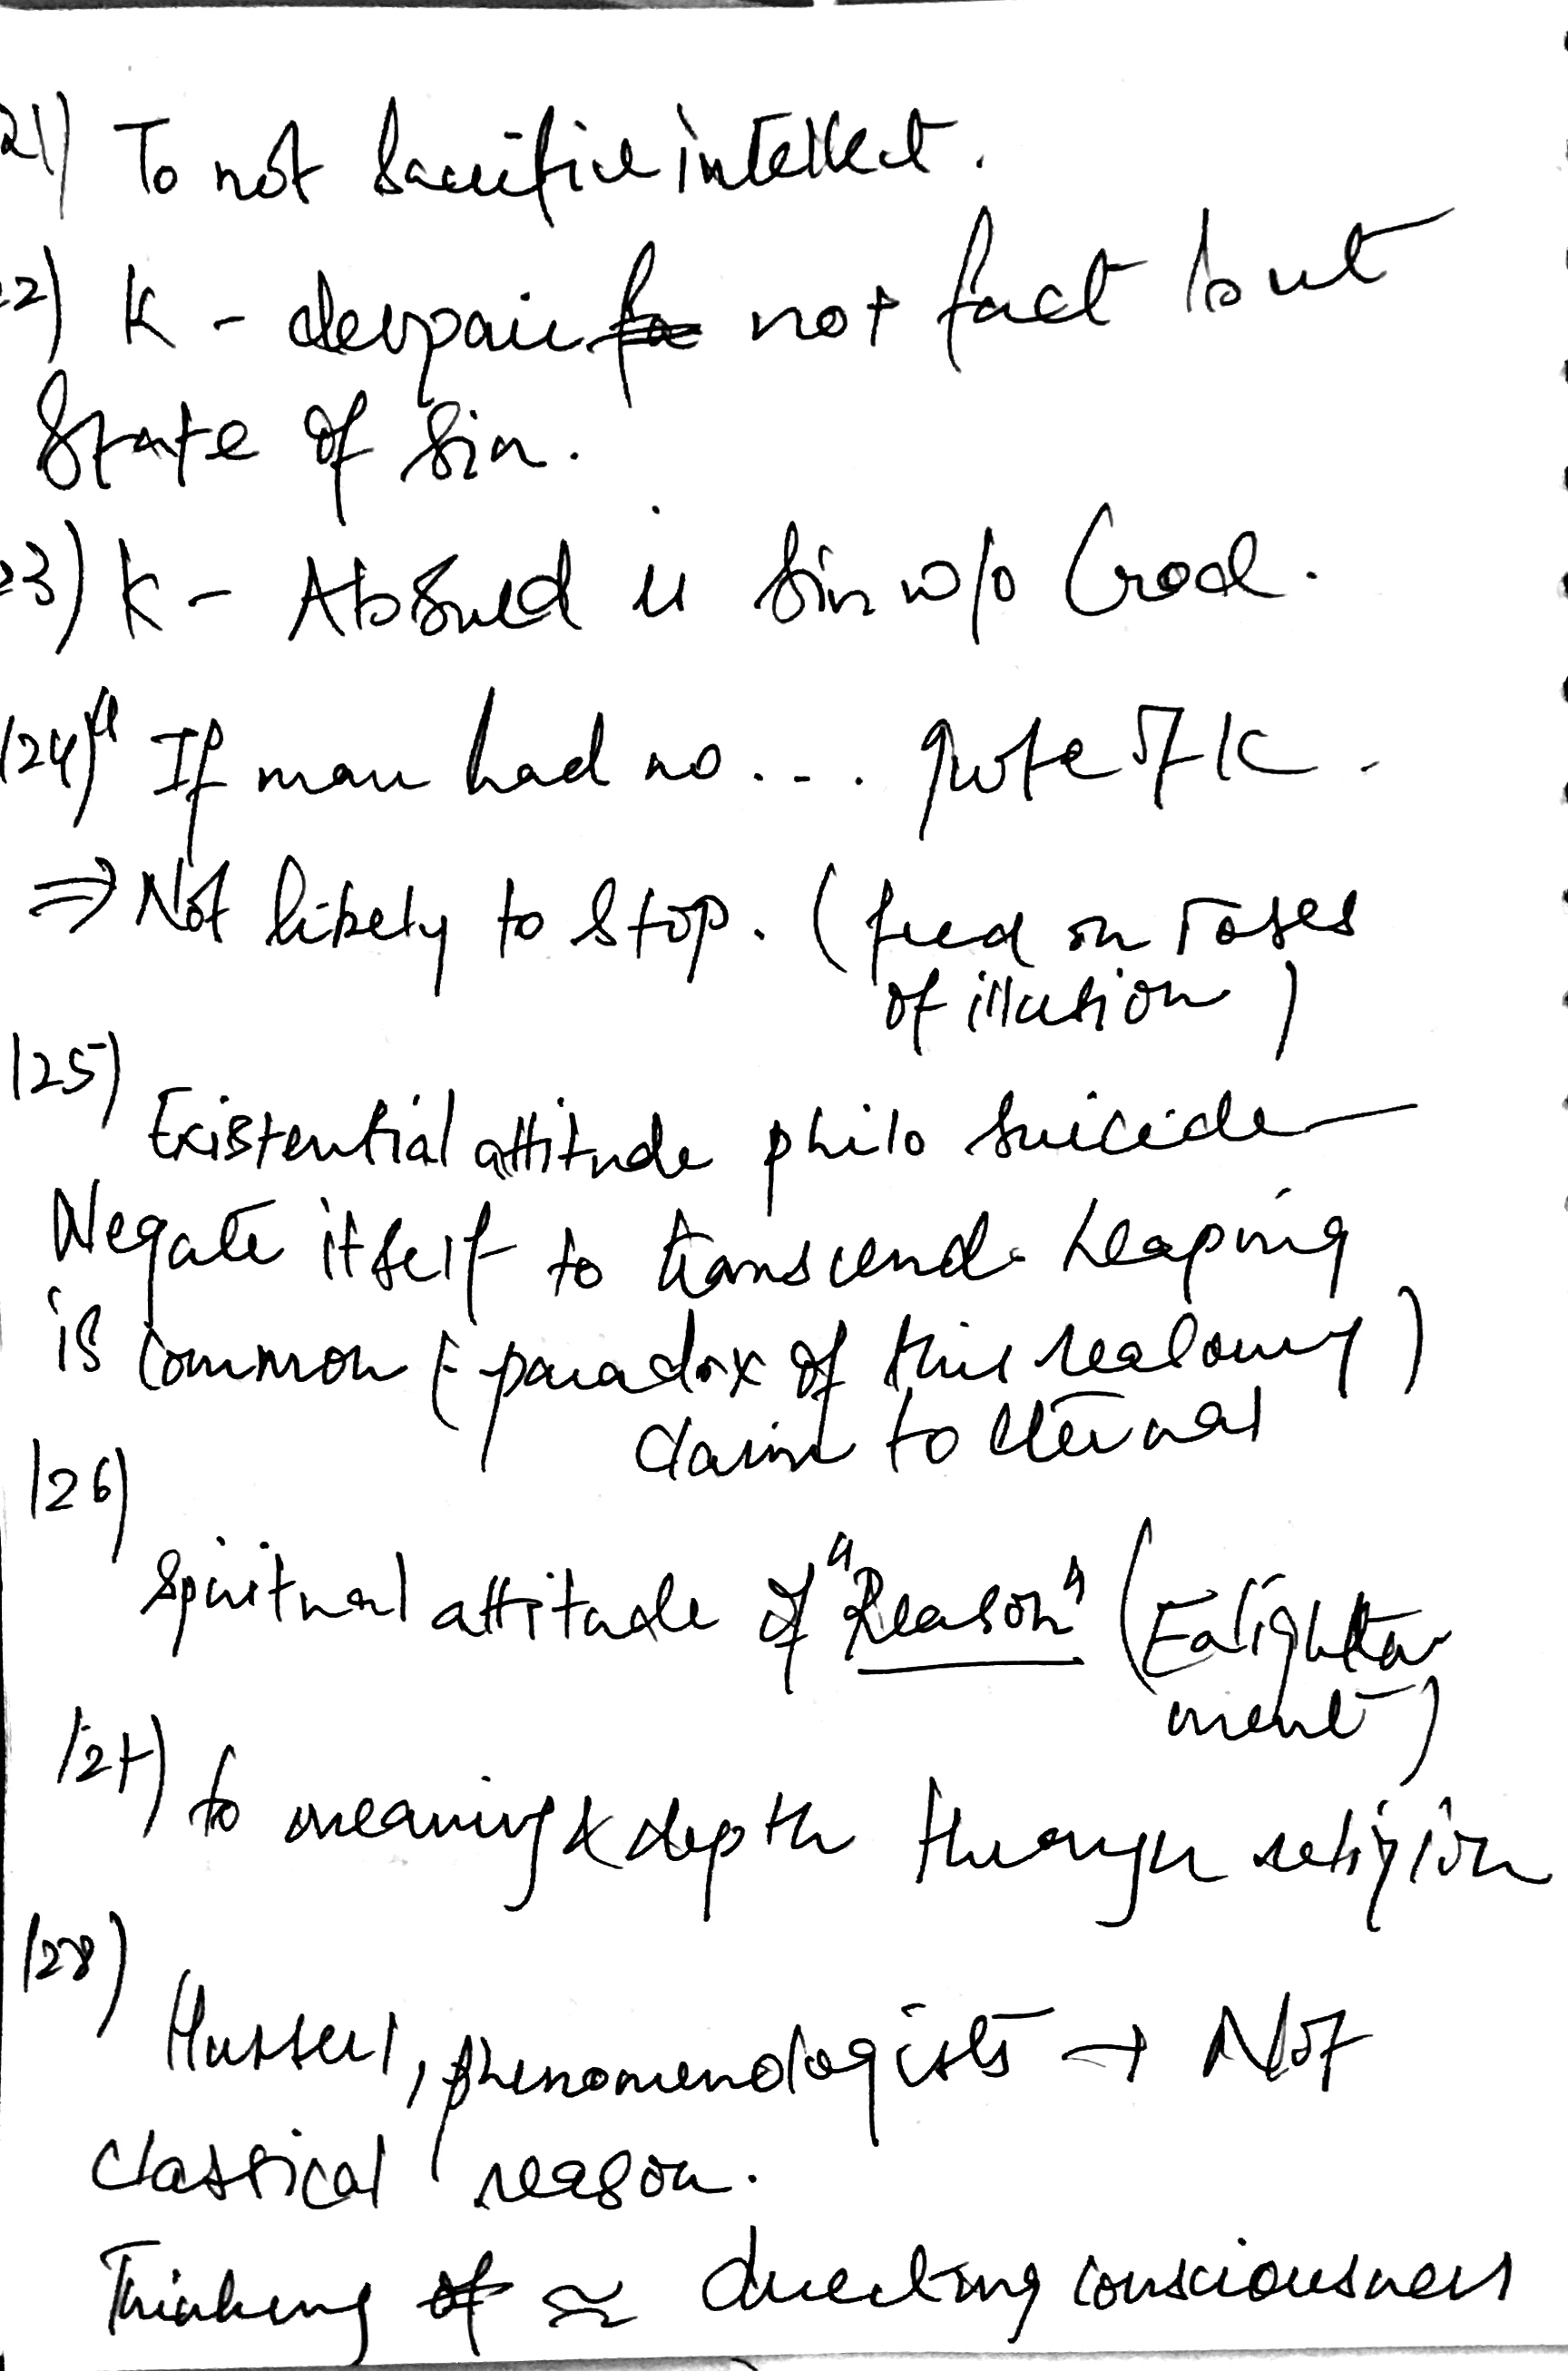 21) To not sacrifice intellect.
22) K - despair not fact but
State of sin.
23) K - Absurd is sin w/o God.
124) " If man had no ... quote of K.
⇒ Not likely to stop. (feed on roses
of illusion)
125)
Existential attitude philo suicide
Negate itself to transcend. Leaping
is common (- paradox of this reasoning)
claim to eternal
126)
Spiritual attitude of "Reason" (Enlighten
ment)
127) to meaning & depth through religion
128)
Husserl, phenomenologists → Not
classical reason.
Thinking ≃ directing consciousness